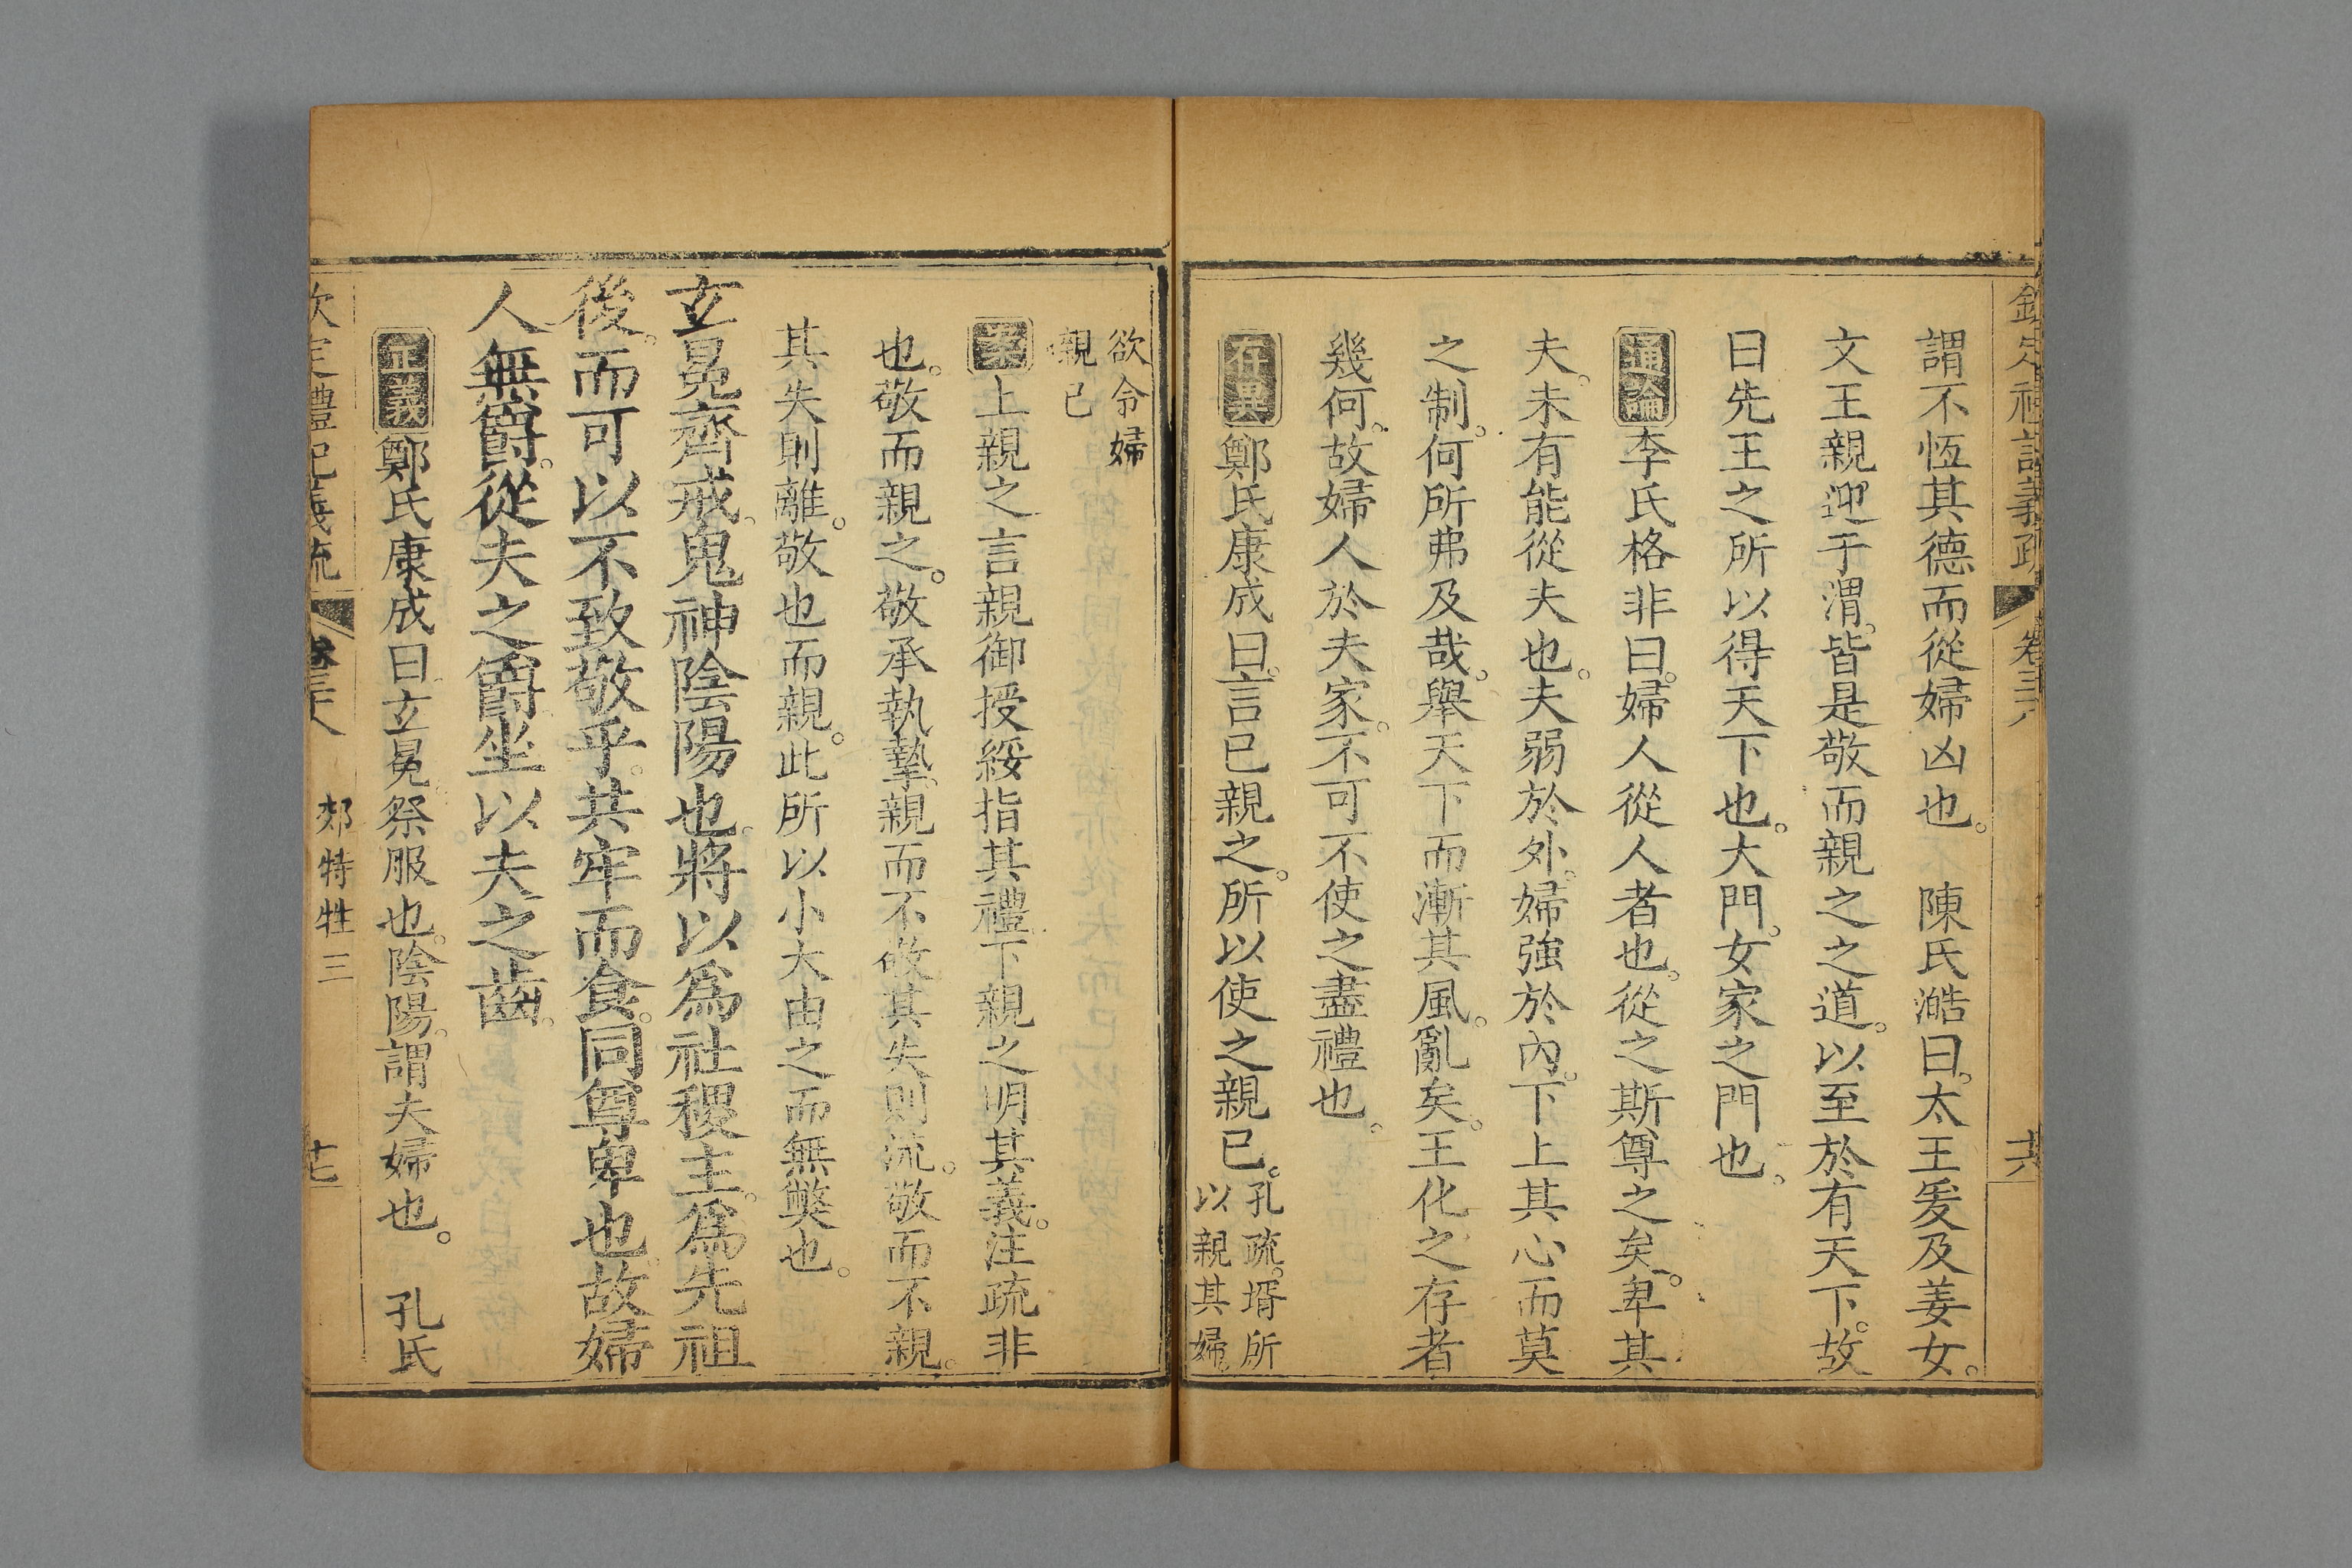 欽定禮記義疏 卷三十八 十六
謂不恆其德而從婦凶也。 陳氏澔曰。太王爰及姜女。
文王親迎于渭。皆是敬而親之之道。以至於有天下。故
曰先王之所以得天下也。大門。女家之門也。
通論 李氏格非曰。婦人從人者也。從之斯尊之矣。卑其
夫。未有能從夫也。夫弱於外。婦強於內。下上其心而莫
之制。何所弗及哉。舉天下而漸其風。亂矣。王化之存者
幾何。故婦人於夫家。不可不使之盡禮也。
存異 鄭氏康成曰。言己親之。所以使之親己。孔疏。壻所以親其婦。
欲令婦親己
案 上親之言親御授綏指其禮下親之明其義。注疏非
也。敬而親之。敬承執摯。親而不敬其失則流。敬而不親。
其失則離。敬也而親。此所以小大由之而無獘也。
玄冕齊戒。鬼神陰陽也。將以爲社稷主。爲先祖
後。而可以不致敬乎。共牢而食。同尊卑也。故婦
人無爵。從夫之爵。坐以夫之齒。
正義 鄭氏康成曰玄冕。祭服也。陰陽。謂夫婦也。 孔氏
欽定禮記義疏 卷三十八 郊特牲三 十七